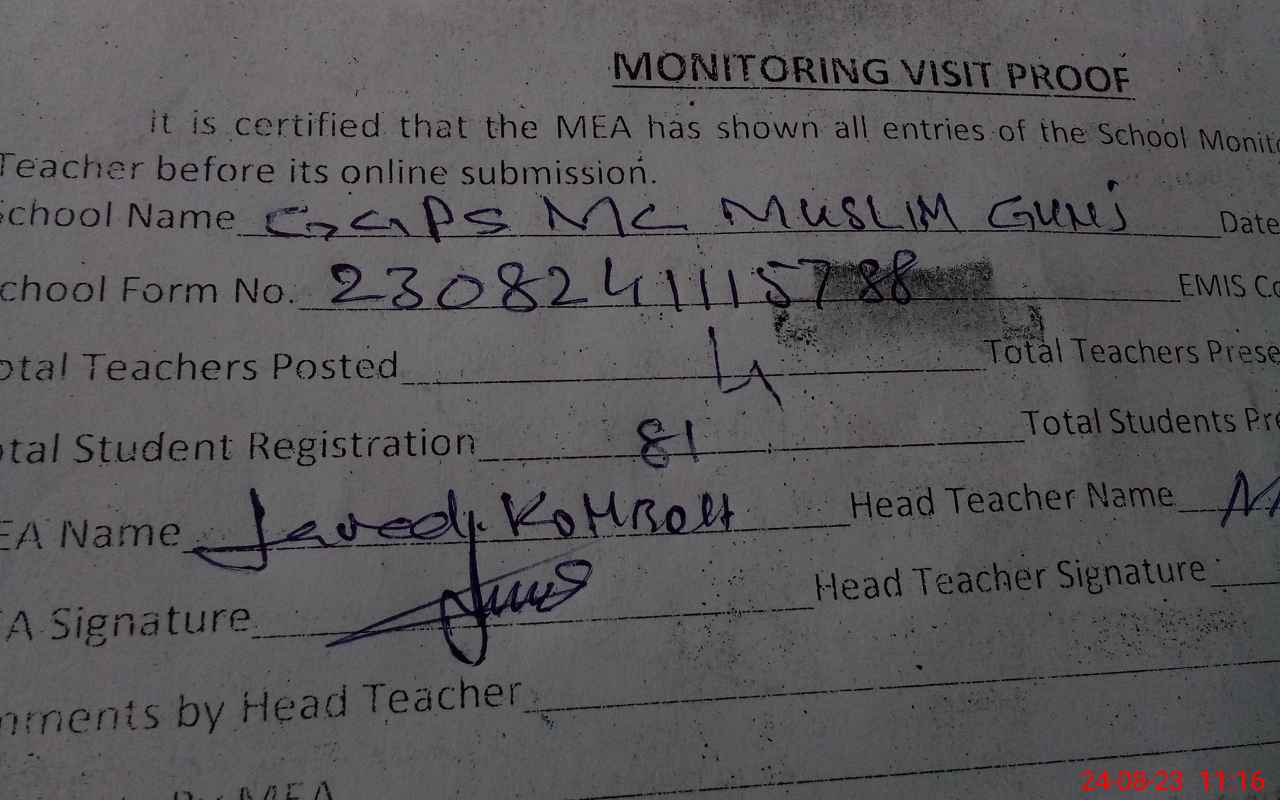 MONITORING VISIT PROOF
it is certified that the MEA has shown all entries of the School Monito
Teacher before its online submission.
School Name GGPS MC MUSLIM GUNJ Date
chool Form No. 23082411115788 EMIS Co
otal Teachers Posted 4 Total Teachers Prese
otal Student Registration 81 Total Students Pre
EA Name Javed Head Teacher Name
EA Signature Head Teacher Signature
mments by Head Teacher
By MEA
24-08-23 11:16